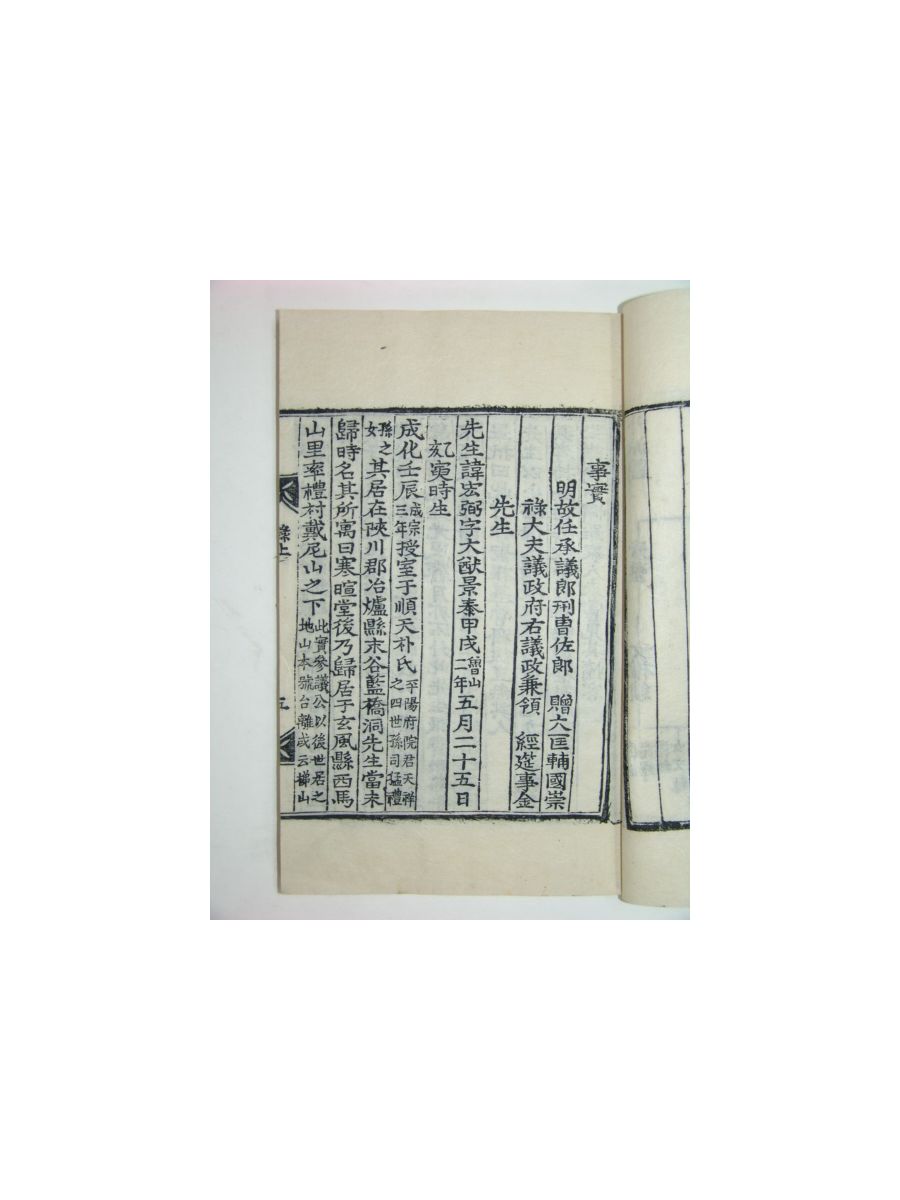 事實
明故任承議郎刑曹佐郎　贈大匡輔國崇
祿大夫議政府右議政兼領　經筵事金
先生
先生諱宏弼字大猷景泰甲戌二年五月二十五日
寅時生
成化壬辰成宗三年授室于順天朴氏平陽府院君天祥之四世孫司猛禮
孫之女其居在陜川郡冶爐縣末谷藍橋洞先生當未
歸時名其所寓曰寒暄堂後乃歸居于玄風縣西馬
山里率禮村戴尼山之下此實參議公以後世居之地山本號台離或云梯山
錄上
五